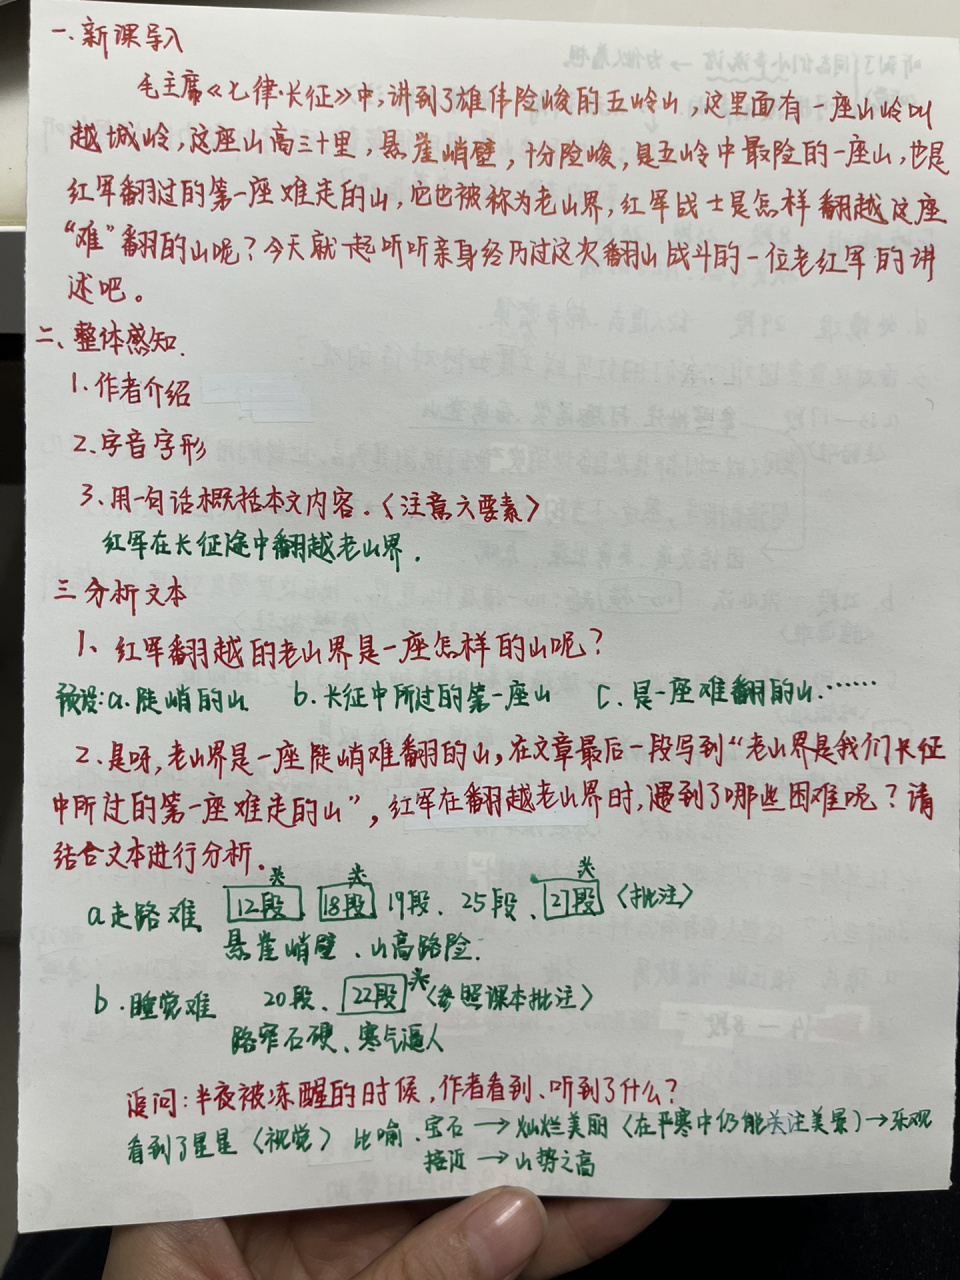 一、新课导入
毛主席《七律·长征》中,讲到了雄伟险峻的五岭山,这里面有一座山岭叫
越城岭,这座山高三十里,悬崖峭壁,十分险峻,是五岭中最险的一座山,也是
红军翻过的第一座难走的山,它也被称为老山界,红军战士是怎样翻越这座
“难”翻的山呢?今天就一起听听亲身经历过这次翻山战斗的一位老红军的讲
述吧。
二、整体感知.
1.作者介绍
2.字音字形
3.用一句话概括本文内容.〈注意六要素〉
红军在长征途中翻越老山界.
三 分析文本
1、红军翻越的老山界是一座怎样的山呢?
预设:a.陡峭的山 b.长征中所过的第一座山 C.是一座难翻的山.……
2.是呀,老山界是一座陡峭难翻的山,在文章最后一段写到“老山界是我们长征
中所过的第一座难走的山”,红军在翻越老山界时,遇到了哪些困难呢?请
结合文本进行分析.
a走路难 12段、18段、19段、25段、27段〈批注〉
悬崖峭壁、山高路险.
b.睡觉难 20段、22段〈参照课本批注〉
路窄石硬、寒气逼人
追问:半夜被冻醒的时候,作者看到、听到了什么?
看到了星星〈视觉〉比喻、宝石→灿烂美丽(在严寒中仍能关注美景)→乐观
接近→山势之高